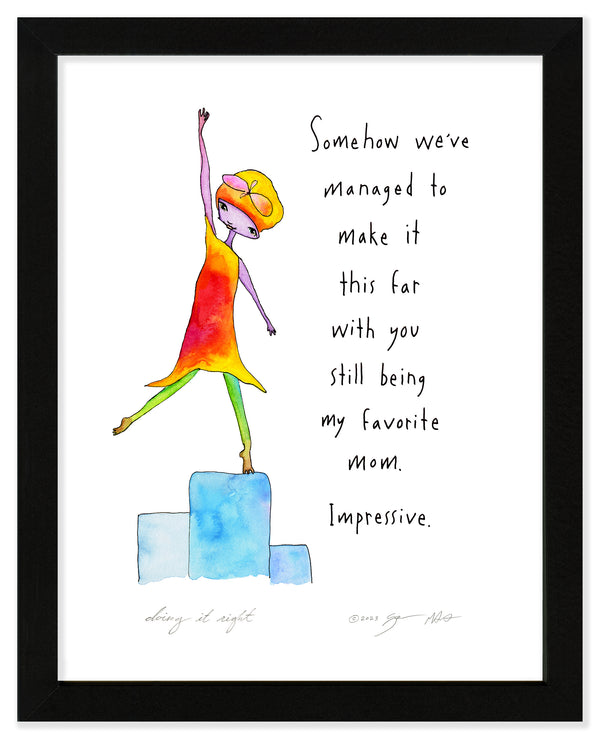 Somehow we've
managed to
make it
this far
with you
still being
my favorite
mom.
Impressive.
doing it right
©2023